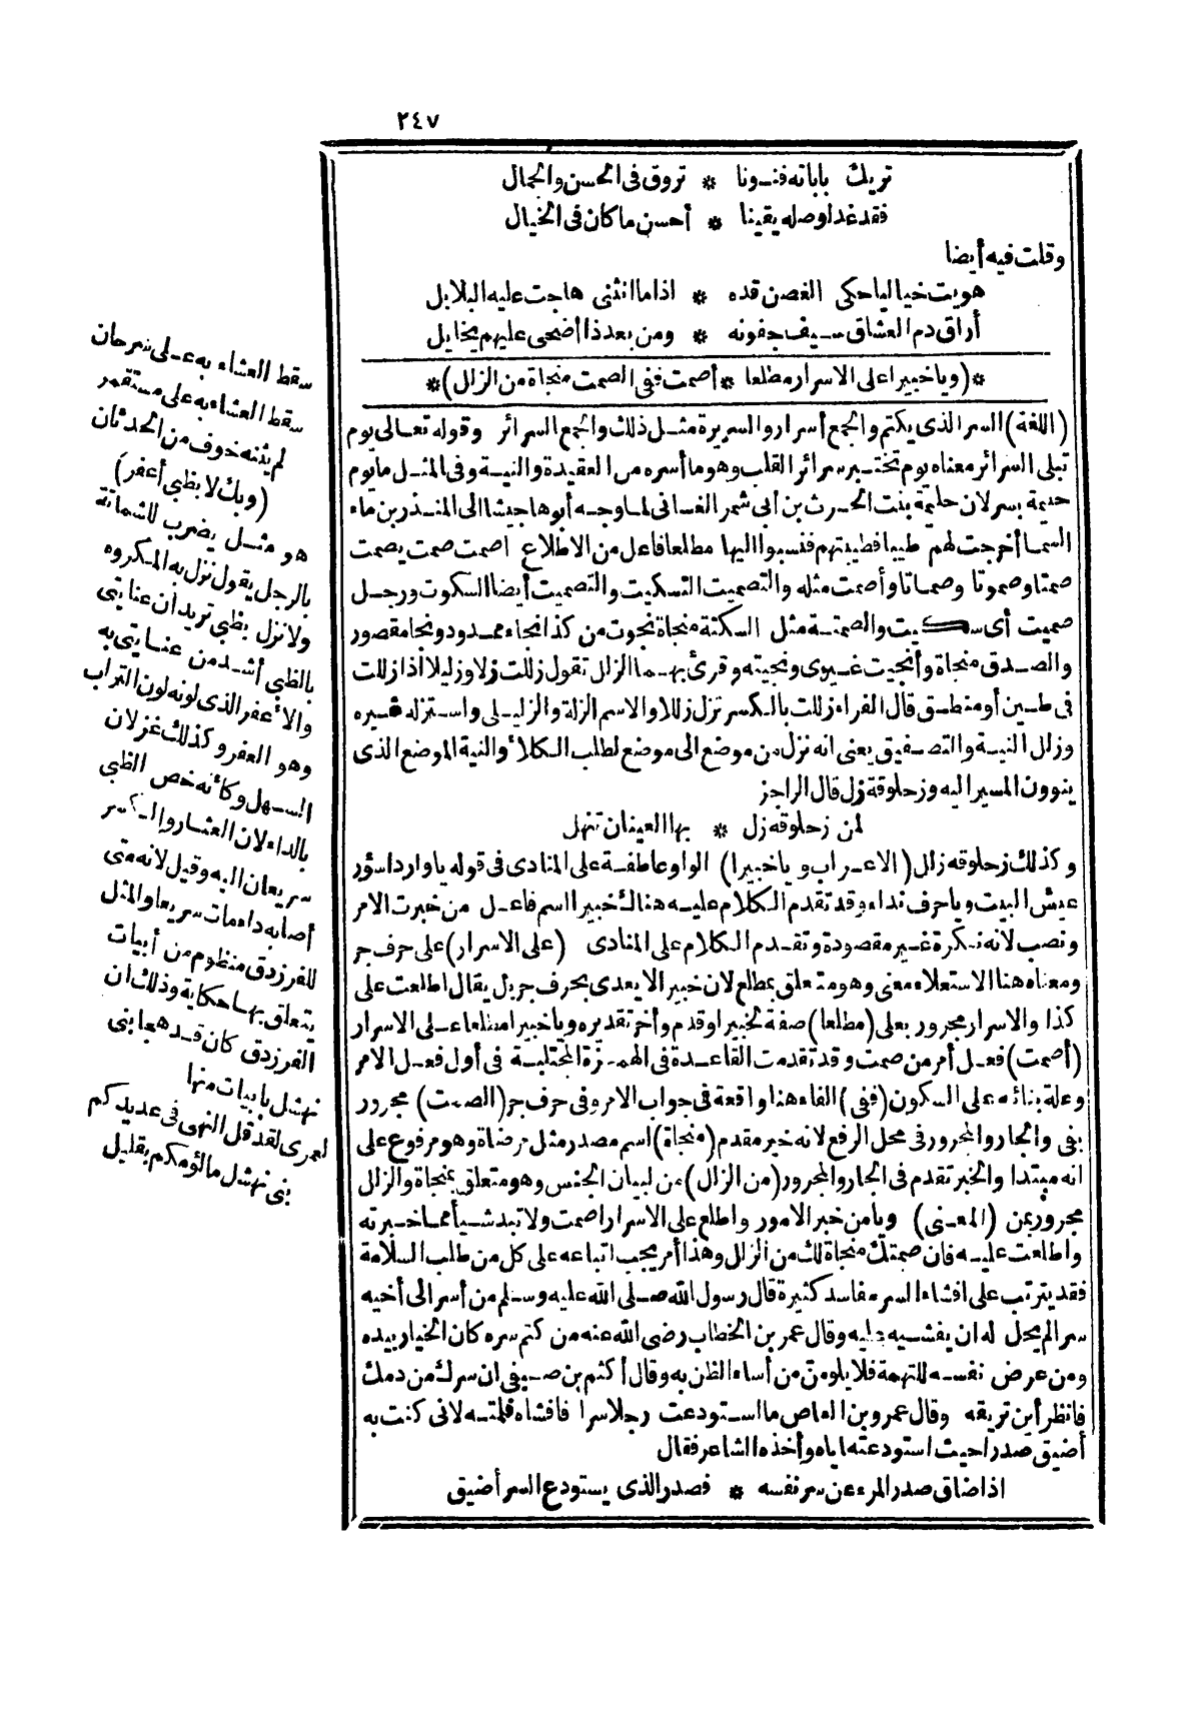 ٢٤٧
تريك باباته فنونا * تروق فى الحسن والجمال
فقد غدا وصله يقينا * أحسن ما كان فى الخيال
وقلت فيه أيضا
هويت خياليا حكى الغصن قده * اذا ما انثنى هاجت عليه البلابل
أراق دم العشاق سيف جفونه * ومن بعد ذا أضحى عليهم يخايل
*(ويا خبيرا على الاسرار مطلعا * أصمت ففى الصمت منجاة من الزلل)*
(اللغة) السر الذى يكتم والجمع أسرار والسريرة مثل ذلك والجمع السرائر وقوله تعالى يوم
تبلى السرائر معناه يوم تختبر سرائر القلب وهو ما أسره من العقيدة والنية وفى المثل ما يوم
حليمة بسر لان حليمة بنت الحرث بن أبى شمر الغسانى لما وجه أبوها جيشا الى المنذر بن ماء
السما أخرجت لهم طيبا فطيبتهم فنسبوا اليها مطلعا فاعل من الاطلاع اصمت صمت يصمت
صمتا وصموتا وصماتا وأصمت مثله والتصميت التسكيت والتصميت أيضا السكوت ورجل
صميت أى سكيت والصمتة مثل السكتة منجاة نجوت من كذا نجاء ممدود ونجا مقصور
والصدق منجاة وأنجيت غيرى ونجيته وقرئ بهما الزلل تقول زللت زلا وزليلا اذا زللت
فى طين أو منطق قال الفراء زللت بالكسر تزل زللا والاسم الزلة والزليلى واستزله غيره
وزلل النية والتصفيق يعنى انه نزل من موضع الى موضع لطلب الكلأ والنية الموضع الذى
ينوون المسير اليه وزحلوقة زل قال الراجز
لمن زحلوقه زل * بها العينان تنهل
وكذلك زحلوقه زلل (الاعراب ويا خبيرا) الواو عاطفة على المنادى فى قوله يا واردا سؤر
عيش البيت ويا حرف نداء وقد تقدم الكلام عليه هناك خبيرا اسم فاعل من خبرت الامر
ونصب لانه نكرة غير مقصودة وتقدم الكلام على المنادى (على الاسرار) على حرف جر
ومعناه هنا الاستعلاء معنى وهو متعلق بمطلع لان خبيرا لا يعدى بحرف جر بل يقال اطلعت على
كذا والاسرار مجرور بعلى (مطلعا) صفة لخبيرا وقدم وأخر تقديره ويا خبيرا مطلعا على الاسرار
(أصمت) فعل أمر من صمت وقد تقدمت القاعدة فى الهمزة المجتلبة فى أول فعل الامر
وعلة بنائه على السكون (ففى) الفاء هنا واقعة فى جواب الامر وفى حرف جر (الصمت) مجرور
بفى والجار والمجرور فى محل الرفع لانه خبر مقدم (منجاة) اسم مصدر مثل مرضاة وهو مرفوع على
انه مبتدا والخبر تقدم فى الجار والمجرور (من الزلل) من لبيان الجنس وهو متعلق بمنجاة والزلل
مجرور بمن (المعنى) ويا من خبر الامور واطلع على الاسرار اصمت ولا تبد شيأ مما خبرته
واطلعت عليه فان صمتك منجاة لك من الزلل وهذا أمر يجب اتباعه على كل من طلب السلامة
فقد يترتب على افشاء السر مفاسد كثيرة قال رسول الله صلى الله عليه وسلم من أسر الى أخيه
سرا لم يحل له ان يفشيه عليه وقال عمر بن الخطاب رضى الله عنه من كتم سره كان الخيار بيده
ومن عرض نفسه للتهمة فلا يلومن من أساء الظن به وقال أكثم بن صيفى ان سرك من دمك
فانظر أين تريقه وقال عمرو بن العاص ما استودعت رجلا سرا فافشاه فلمته لانى كنت به
أضيق صدرا حيث استودعته اياه وأخذه الشاعر فقال
اذا ضاق صدر المرء عن سر نفسه * فصدر الذى يستودع السر أضيق
سقط العشاء به على سرحان
سقط العشاء به على متقمر
لم يثنه خوف من الحدثان
(وبك لا بظبى أعفر)
هو مثل يضرب للشماتة
بالرجل يقول نزل به المكروه
ولا نزل بظبى تريد ان عنايتى
بالظبى أشد من عنايتى به
والاعفر الذى لونه لون التراب
وهو العفر وكذلك غزلان
السهل وكأنه خص الظبى
بالداء لان العثار والكسر
سريعان اليه وقيل لانه متى
أصابه داء مات سريعا والمثل
للفرزدق منظوم من أبيات
يتعلق بها حكاية وذلك ان
الفرزدق كان قد هجا بنى
نهشل بابيات منها
لعمرى لقد قل النهى فى عديدكم
بنى نهشل ما لؤمكم بقليل